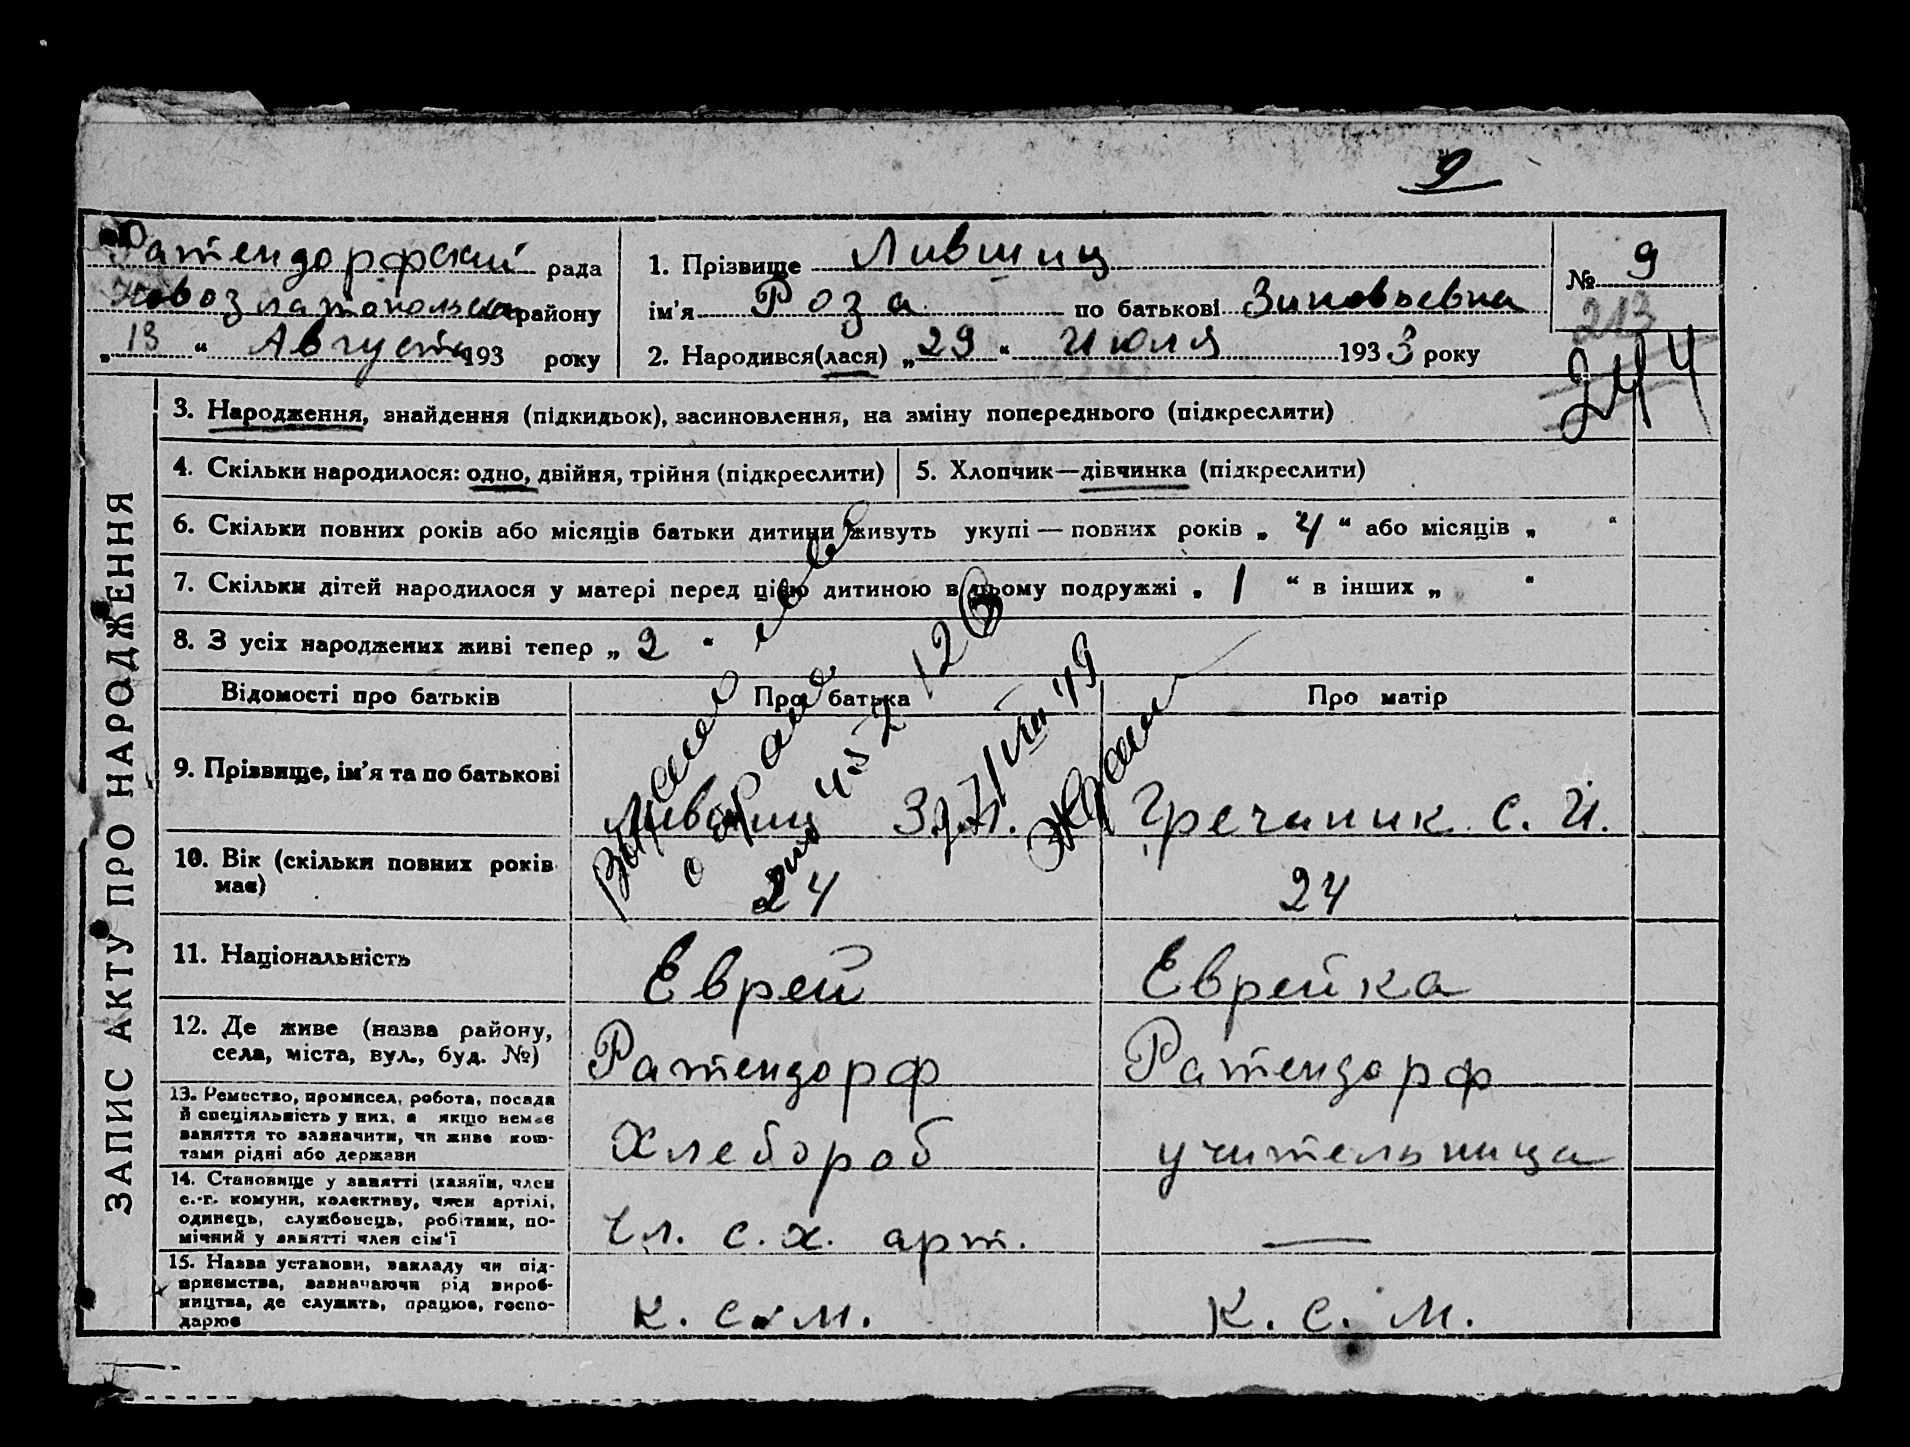 9
Ратендорфский рада
Новозлатопольск району
„ 13 “ Августа 193 року
1. Прізвище Лившиц
ім'я Роза по батькові Зиновьевна
2. Народився(лася) „ 29 “ Июля 193 3 року
№ 9
213
244
ЗАПИС АКТУ ПРО НАРОДЖЕННЯ
3. Народження, знайдення (підкидьок), засиновлення, на зміну попереднього (підкреслити)
4. Скільки народилося: одно, двійня, трійня (підкреслити)
5. Хлопчик—дівчинка (підкреслити)
6. Скільки повних років або місяців батьки дитини живуть укупі — повних років „ 4 “ або місяців „ “
7. Скільки дітей народилося у матері перед цією дитиною в цьому подружжі „ 1 “ в інших „ “
8. З усіх народжених живі тепер „ 2 “
Відомості про батьків Про батька Про матір
9. Прізвище, ім'я та по батькові Лившиц Гречаник С. И.
10. Вік (скільки повних років має) 24 24
11. Національність Еврей Еврейка
12. Де живе (назва району, села, міста, вул., буд. №) Ратендорф Ратендорф
13. Ремество, промисел, робота, посада й спеціяльність у них, а якщо немає заняття то зазначити, чи живе коштами рідні або держави Хлебороб учительница
14. Становище у занятті (хазяїн, член с.-г. комуни, колективу, член артілі, одинець, службовець, робітник, помічний у занятті член сім'ї Чл. с. х. арт. —
15. Назва установи, закладу чи підприємства, зазначаючи рід виробництва, де служить, працює, господарює к. с. м. К. с. м.